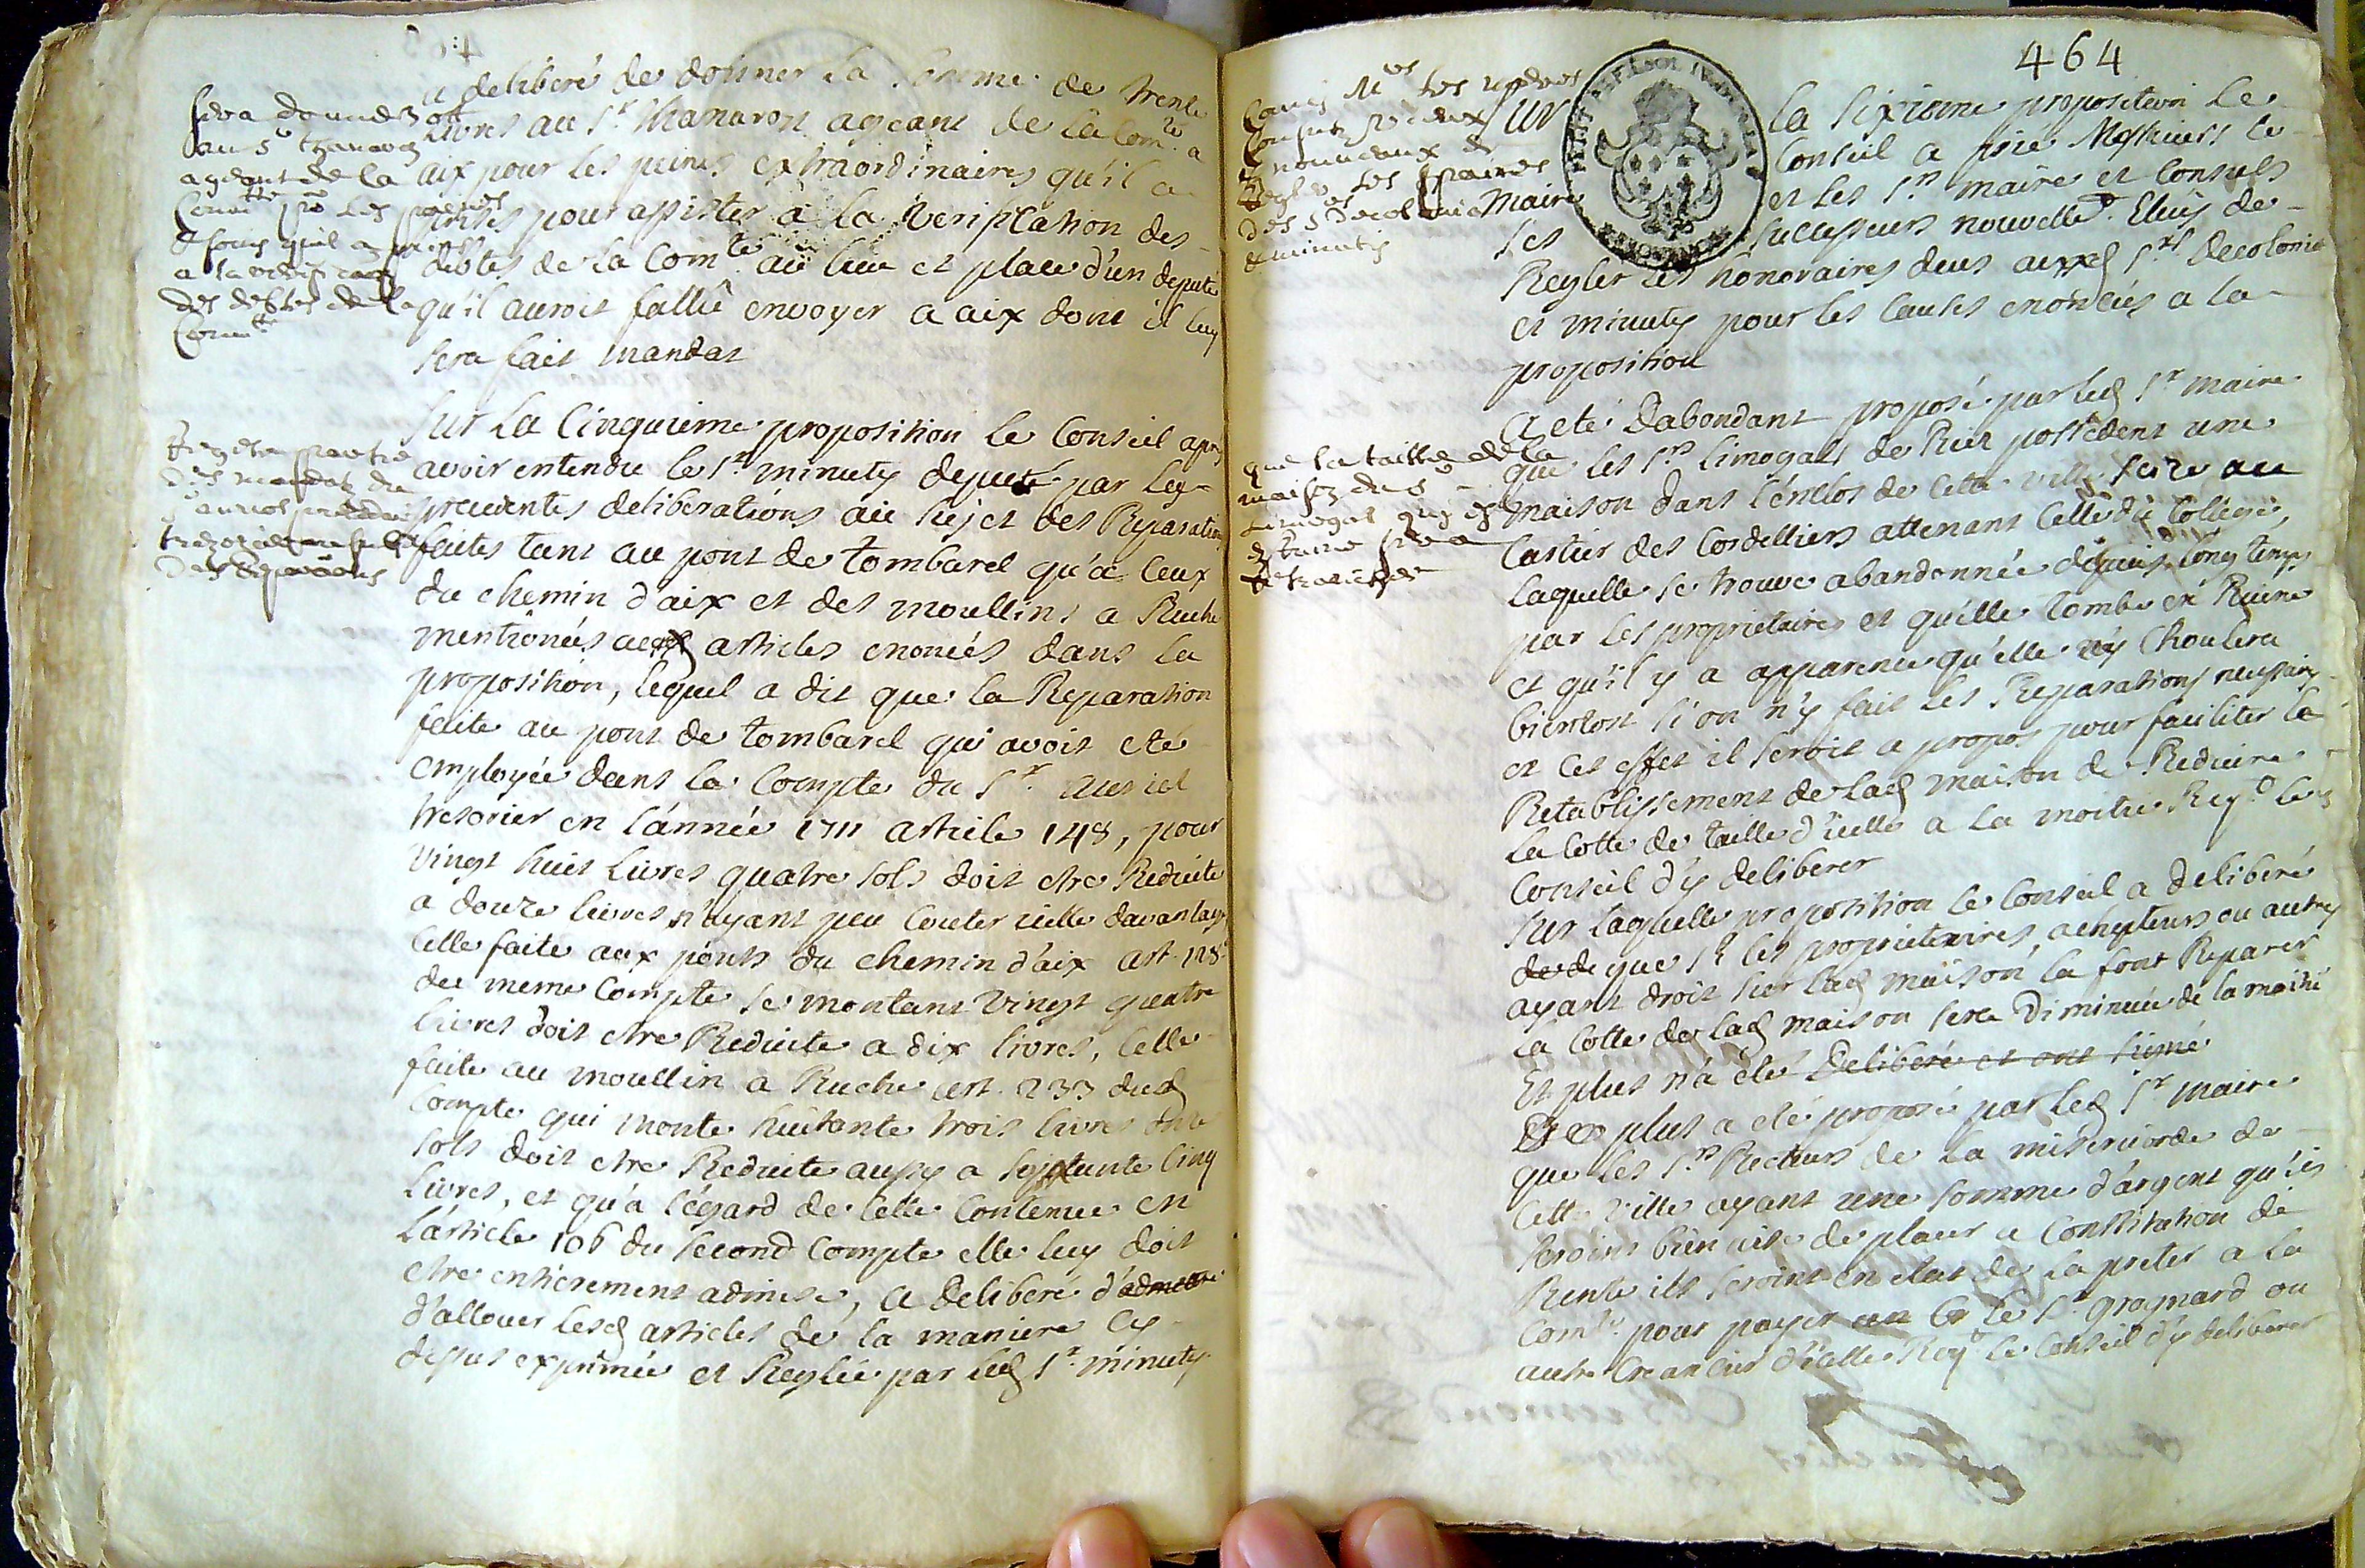 a deliberé de donner la somme de trente
livres au Sr. thanaron ageant de la Comté. a
aix pour les peines extraordinaires qu'il a
prises pour assister a la verification des
debtes de la Comté. au lieu et place d'un deputé
qu'il auroit fallû envoyer a aix dont il luy
sera fait mandat
sera donné 30 ₶
au Sr thanaron
ageant de la
Comté pr les peines
& soins quil a prises
a la verification
des debtes de la
Comté
Sur la Cinquieme proposition le Conseil apres
avoir entendu le Sr. minuty deputé par les
precedentes deliberations au sujet des Reparations
faites tant au pont de tombarel qu'a ceux
du chemin d'aix et des moullins a Ruche
mentionées auxd articles enoncés dans la
proposition, lequel a dit que la Reparation
faite au pont de tombarel qui avoit eté
employée dans le Compte du Sr. auriol
tresorier en l'année 1711 article 148, pour
vingt huit livres quatre sols doit etre Reduite
a douze livres n'ayant peu Couter icelle davantage
Celle faite aux ponts du chemin d'aix art. 128.
du meme Compte se montant vingt quatre
livres doit etre Reduite a dix livres, Celle
faite au moullin a Ruche art. 233 dud
Compte qui monte huitante trois livres onze
sols doit etre Reduite aussy a septante Cinq
livres, et qu'a l'égard de Celle Contenue en
L'article 106 du second Compte elle luy doit
etre entierement admise, a deliberé d'admettre
d'allouer lesd articles de la maniere Cy
dessus exprimée et Reglée par led Sr. minuty
partie
des mandats du
Sr auriol
trezorier
des reparaons
464
Sur la sixieme proposition le
Conseil a prié Messieurs le
Maire et les Srs. maire et Consuls
ses successeurs nouvellet. Eluis de
Regler les honoraires deus auxd Srs. Decolonia
et minuty pour les causes enoncées a la
proposition
Mrs les
Consuls vieux
& nouveaux de
Regler les
des Srs decolonia
& minutis
A eté Dabondant proposé par led Sr. maire
que les Srs. limogats de Riez possedent une
maison dans l'enclos de Cette ville size au
Cartier des Cordelliers attenant Celle du College,
laquelle se trouve abandonnée depuis long temps
par les proprietaires et qu'elle tombe en Ruine
et qu'il y a apparence qu'elle s'y Choulera
bientost si on n'y fait les Reparations necessaires
et Cet effet il seroit a propos pour faciliter le
Retablissement de lad maison de Reduire
la Cotte de taille d'icelle a la moitié Reqt. le
Conseil d'y deliberer
que la taille de la
maison du Sr
limogat qui est
Sur laquelle proposition le Conseil a deliberé
de de que si les proprietaires, achepteurs ou autres
ayant droit sur lad maison la font Reparer
la Cotte de lad maison sera Diminuée de la moitié
Et plus n'a eté Deliberé et ont signé
De plus a eté proposé par led Sr maire
que les Srs. Recteurs de la misericorde de
Cette ville ayant une somme d'argent qu'ils
seroint bien aise de placer a Constitution de
Rente ils seroint en etat de la preter a la
Comté. pour payer le Sr. gragnard ou
autre Creancier d'icelle Reqt. le Conseil d'y deliberer